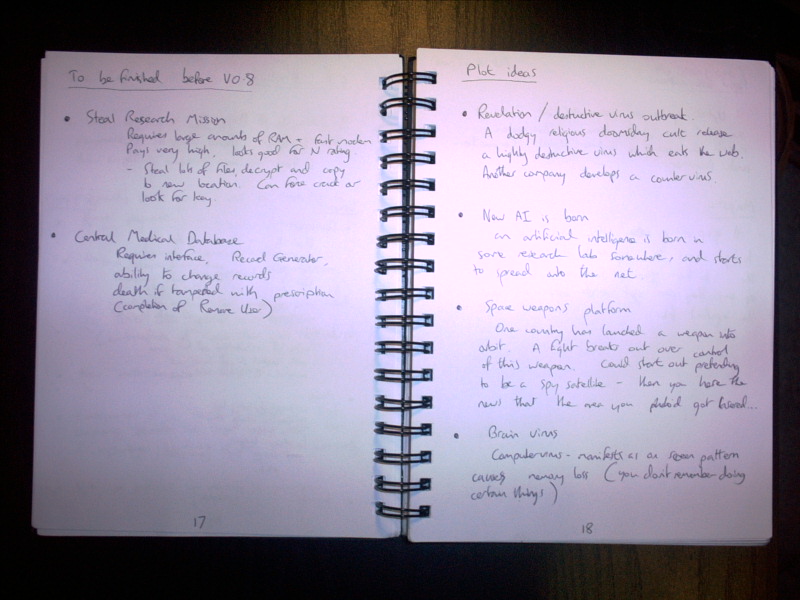 To be finished before V0.8
• Steal Research Mission
Requires large amounts of RAM + fast modem
Pays very high, looks good for N rating.
- Steal lots of files, decrypt and copy
to new location. Can force crack or
look for key.
• Central Medical Database
Requires interface, Record Generator,
ability to change records
death if tampered with prescription
(completion of Remove User)
17
Plot ideas
• Revelation / destructive virus outbreak.
A dodgy religious doomsday cult release
a highly destructive virus which eats the web.
Another company develops a counter virus.
• New AI is born
an artificial intelligence is born in
some research labs somewhere, and starts
to spread onto the net.
• Space weapons platform
One country has launched a weapon into
orbit. A fight breaks out over control
of this weapon. Could start out pretending
to be a spy satellite - then you hear the
news that the area you got lasered...
• Brain virus
Computer virus - manifests as an screen pattern
causes memory loss (you don't remember doing
certain things)
18